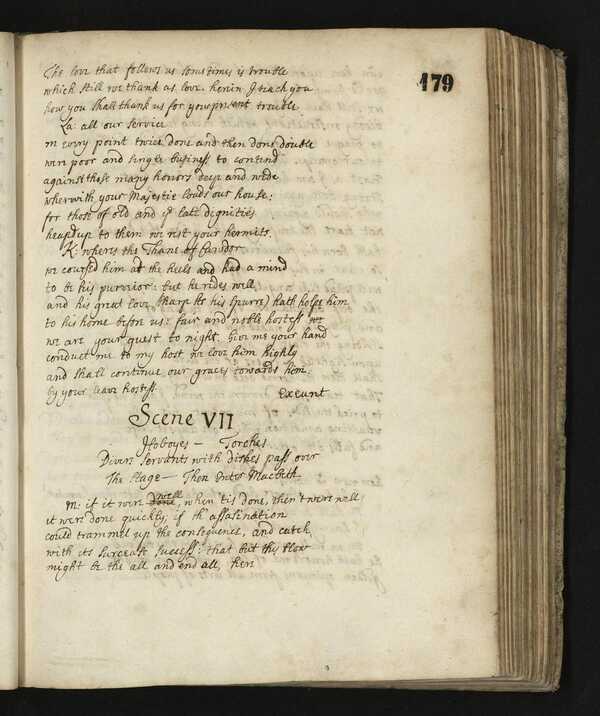 179
The love that follows us sometimes is trouble
which still we thank as love. herin I teach you
how you shall thank us for your present trouble
La: all our service
in every point twice done and then done double
were poor and single business to contend
against those many honors deep and wide
wherwith your Majestie loads our house:
for those of old and ye late dignities
heap'd up to them we rest your hermits.
K: wheres the Thane of Cawdor
we coursed him at the heels and had a mind
to be his purvior: but he rides well
and his great love (sharp as his spurre) hath holpe him
to his home before us: fair and noble hostess we
we are your guest to night. Give me your hand
conduct me to my host we love him highly
and shall continue our graces towards him:
by your leave hostess. Exeunt
Scene VII
Hoboyes — Torches
Divers servants with dishes pass over
The stage — Then Enter Macbeth
M: if it were done well, when 'tis done, then 't were well
it were done quickly; if th' assasination
could trammel up the consequence, and catch
with its surcease success: that but this blow
might be the all and end all, here